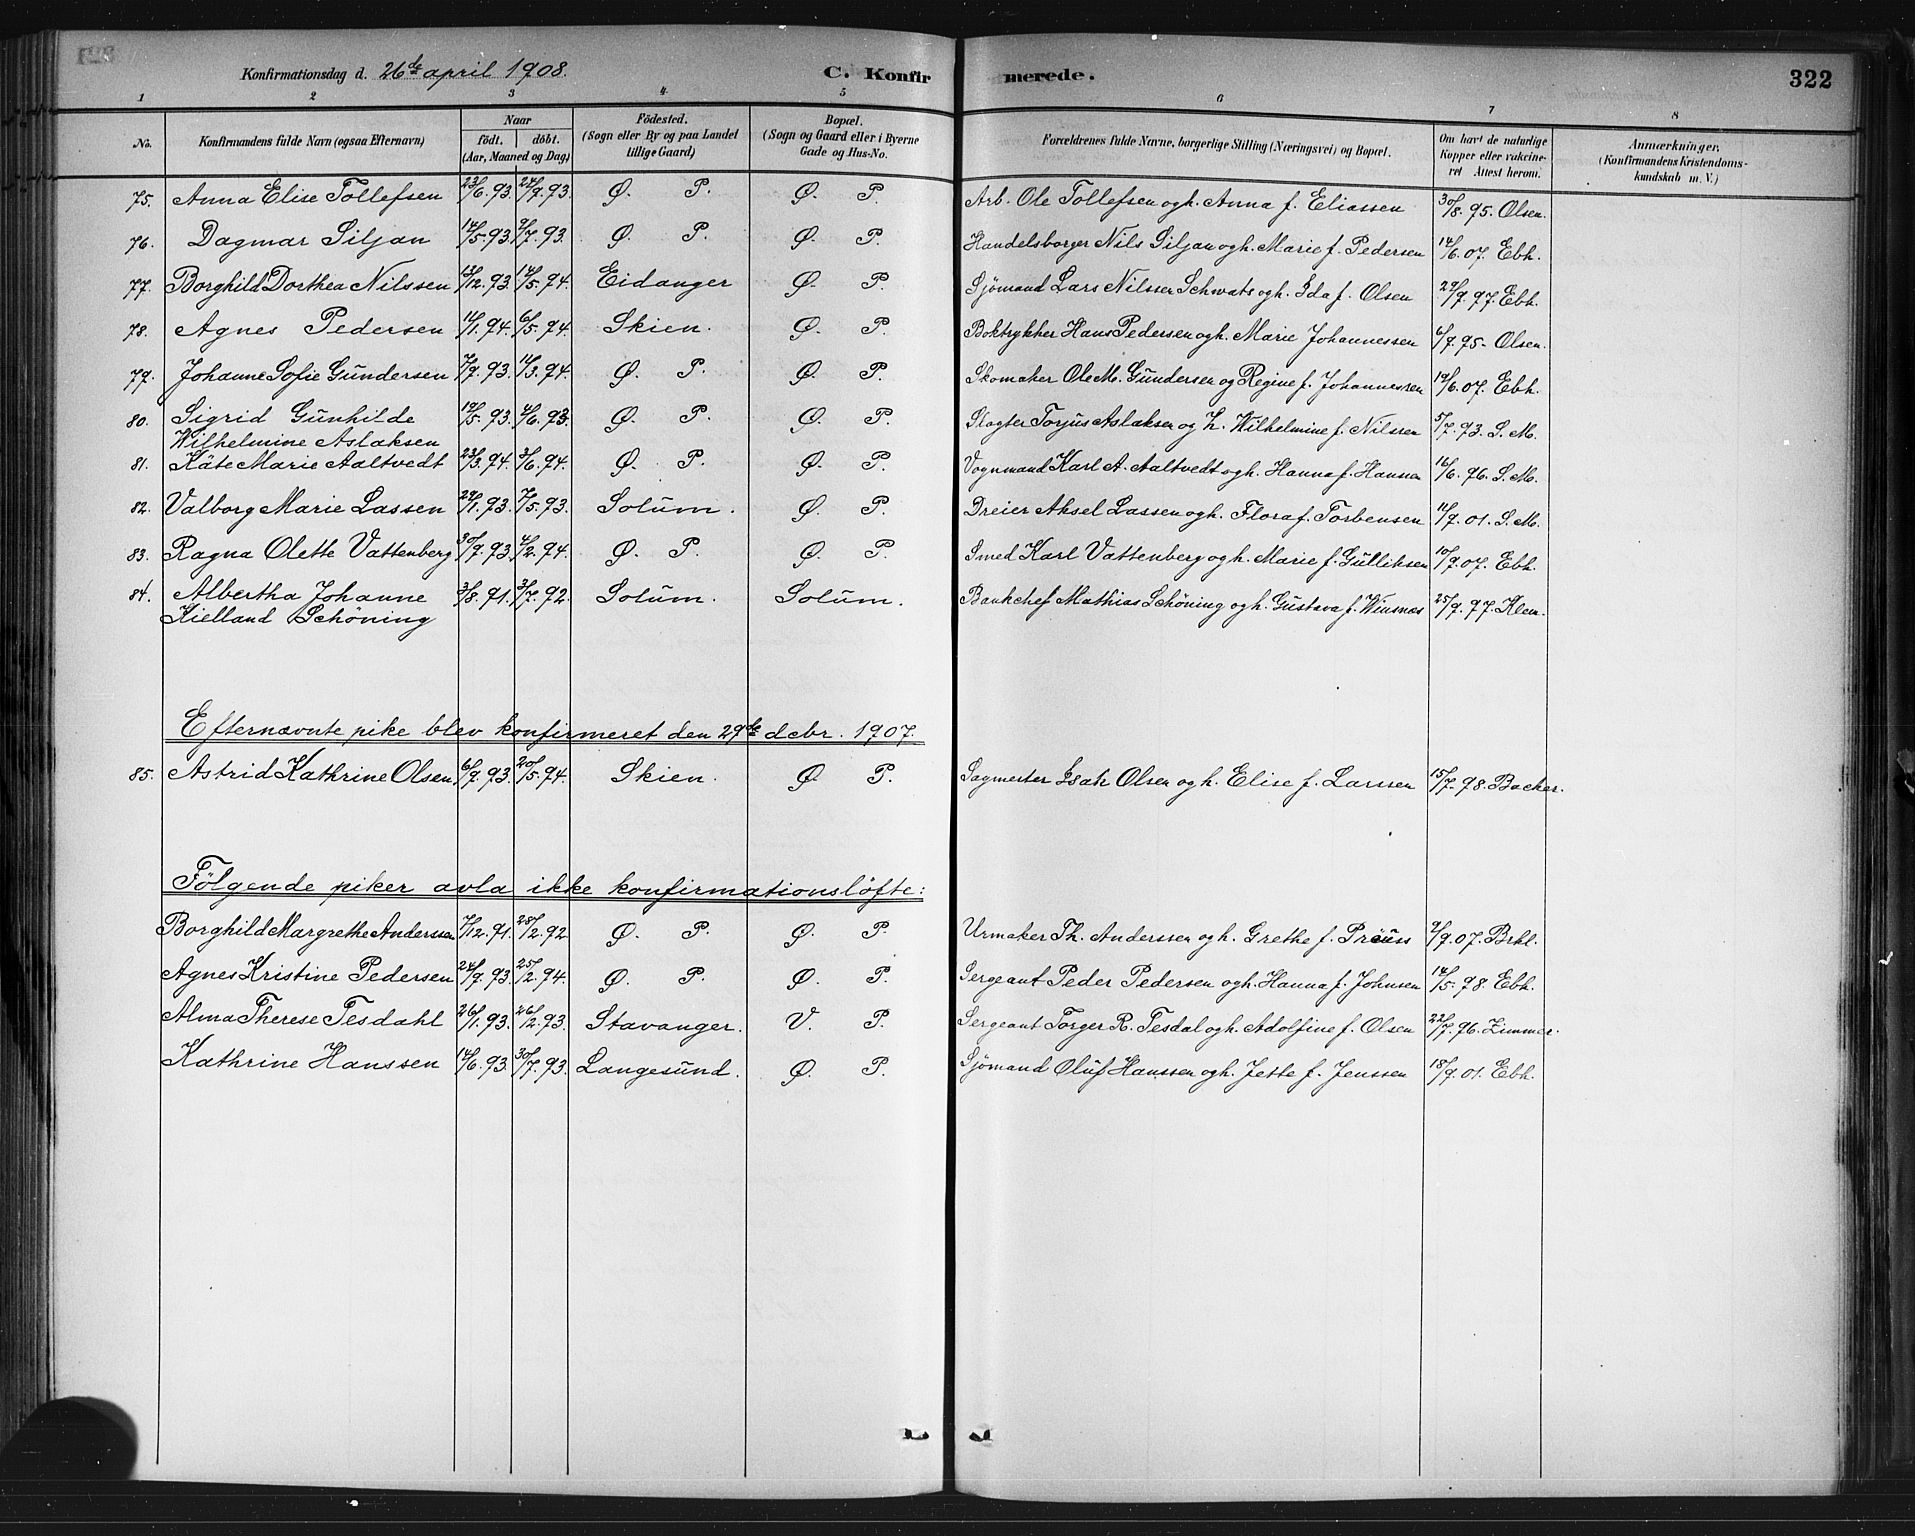 Konfirmationsdag d. 26de april 1908. C. Konfir merede. 322
1 2 3 4 5 6 7 8
No. Konfirmandens fulde Navn (ogsaa Efternavn) Naar födt. döbt. (Aar, Maaned og Dag) Födested. (Sogn eller By og paa Landet tillige Gaard) Bopæl. (Sogn og Gaard eller i Byerne Gade og Hus-No. Forældrenes fulde Navne, borgerlige Stilling (Næringsvei) og Bopæl. Om havt de naturlige Kopper eller vakcineret Attest herom. Anmærkninger. (Konfirmandens Kristendomskundskab m. V.)
75. Anna Elise Tollefsen 23/6.93. 24/9.93. Ø. P. Ø. P. Arb. Ole Tollefsen og h. Anna f. Eliassen 30/8.95. Olsen.
76. Dagmar Siljan 14/5.93. 2/7.93. Ø. P. Ø. P. Handelsborger Nils Siljan og h. Marie f. Pedersen 14/6.07. Ebh.
77. Borghild Dorthea Nilssen 13/12.93. 14/5.94. Eidanger Ø. P. Sjömand Lars Nilssen Schwats og h. Ida f. Olsen 29/9.97. Ebh.
78. Agnes Pedersen 11/1.94. 6/5.94. Skien. Ø. P. Boktrykker Hans Pedersen og h. Marie Johannessen 6/9.95- Olsen.
79. Johanne Sofie Gundersen 7/9.93. 11/3.94. Ø. P. Ø. P. Skomaker Ole M. Gundersen og Regine f. Johannessen 19/6.07. Ebh.
80. Sigrid Gunhilde 19/5.93. 4/6.93. Ø. P. Ø. P. Slagter Torjus Aslaksen og h. Wilhelmine f. Nilssen 5/7.93. S. M.
Wilhelmine Aslaksen
81. Käte Marie Aaltvedt 23/3.94. 3/6.94. Ø. P. Ø. P. Vognmand Karl A. Aaltvedt og h. Hanna f. Hansen 16/6.96. S. M.
82. Valborg Marie Lassen 29/1.93. 7/5.93. Solum. Ø. P. Dreier Aksel Lassen og h. Flora f. Torbensen 11/9.01. S. M.
83. Ragna Olette Vattenberg 30/9.93. 4/2.94. Ø. P. Ø. P. Smed Karl Vattenberg og h. Marie f. Gulliksen 10/9.07. Ebh.
84. Albertha Johanne 3/8.91. 3/7.92. Solum. Solum. Bankchef Mathias Schöning og h. Gustava f. Winsnes 25/9.97. Klem.
Kielland Schöning
Efternævnte pike blev konfirmeret den 29de debr. 1907.
85. Astrid Kathrine Olsen 6/9.93. 20/5.94. Skien. Ø. P. Sagmester Isak Olsen og h. Elise f. Larssen 15/7.98. Backer.
Følgende piker avla ikke konfirmationsløfte:
Borghild Margrethe Anderssen 7/12.91. 28/2.92 Ø. P. Ø. P. Urmaker Th. Anderssen og h. Grethe f. Preuss 2/9.07. Brkl.
Agnes Kristine Pedersen 24/9.93. 25/2.94. Ø. P. Ø. P. Sergeant Peder Pedersen og h. Hanna f. Johnsen 14/5.98. Ebh.
Alma Therese Tesdahl 26/1.93. 26/2.93. Stavanger. V. P. Sergeant Torger R. Tesdal og h. Adolfine f. Olsen 22/7.96. Zimmer.
Kathrine Hanssen 14/6.93. 30/7.93. Langesund. Ø. P. Sjömand Oluf Hanssen og h. Jette f. Jenssen 18/9.01. Ebh.